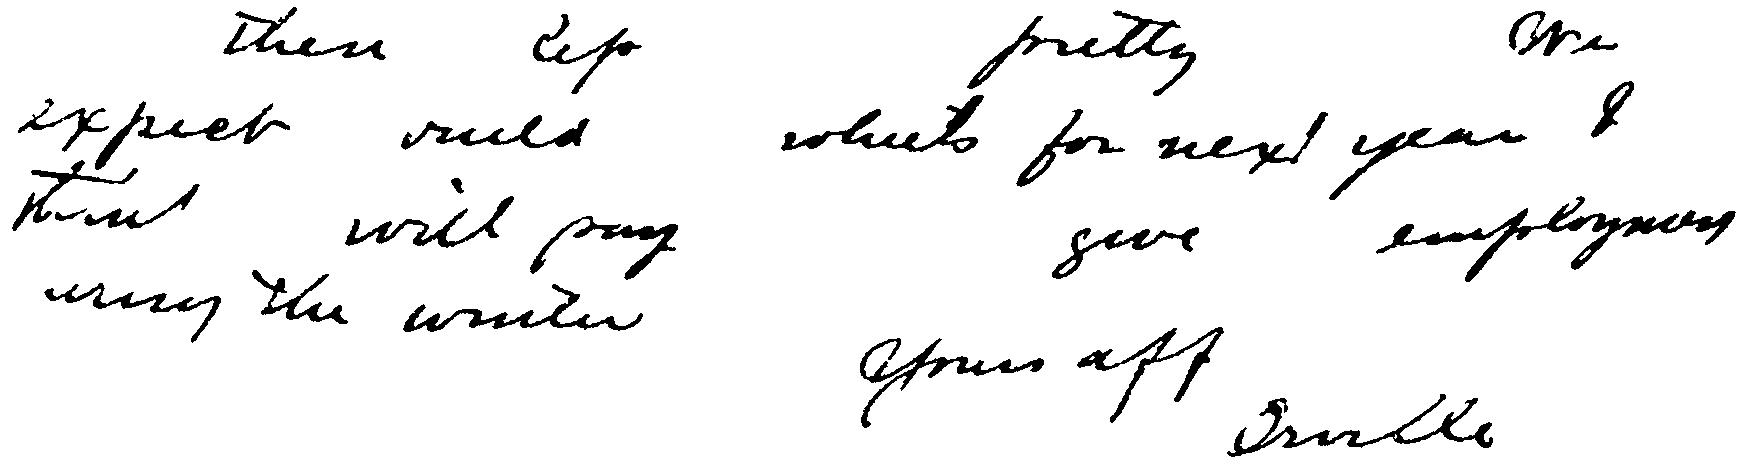 them up pretty We
expect build wheels for next year I
think will pay give employment
uring the winter
Yours aff
Orville